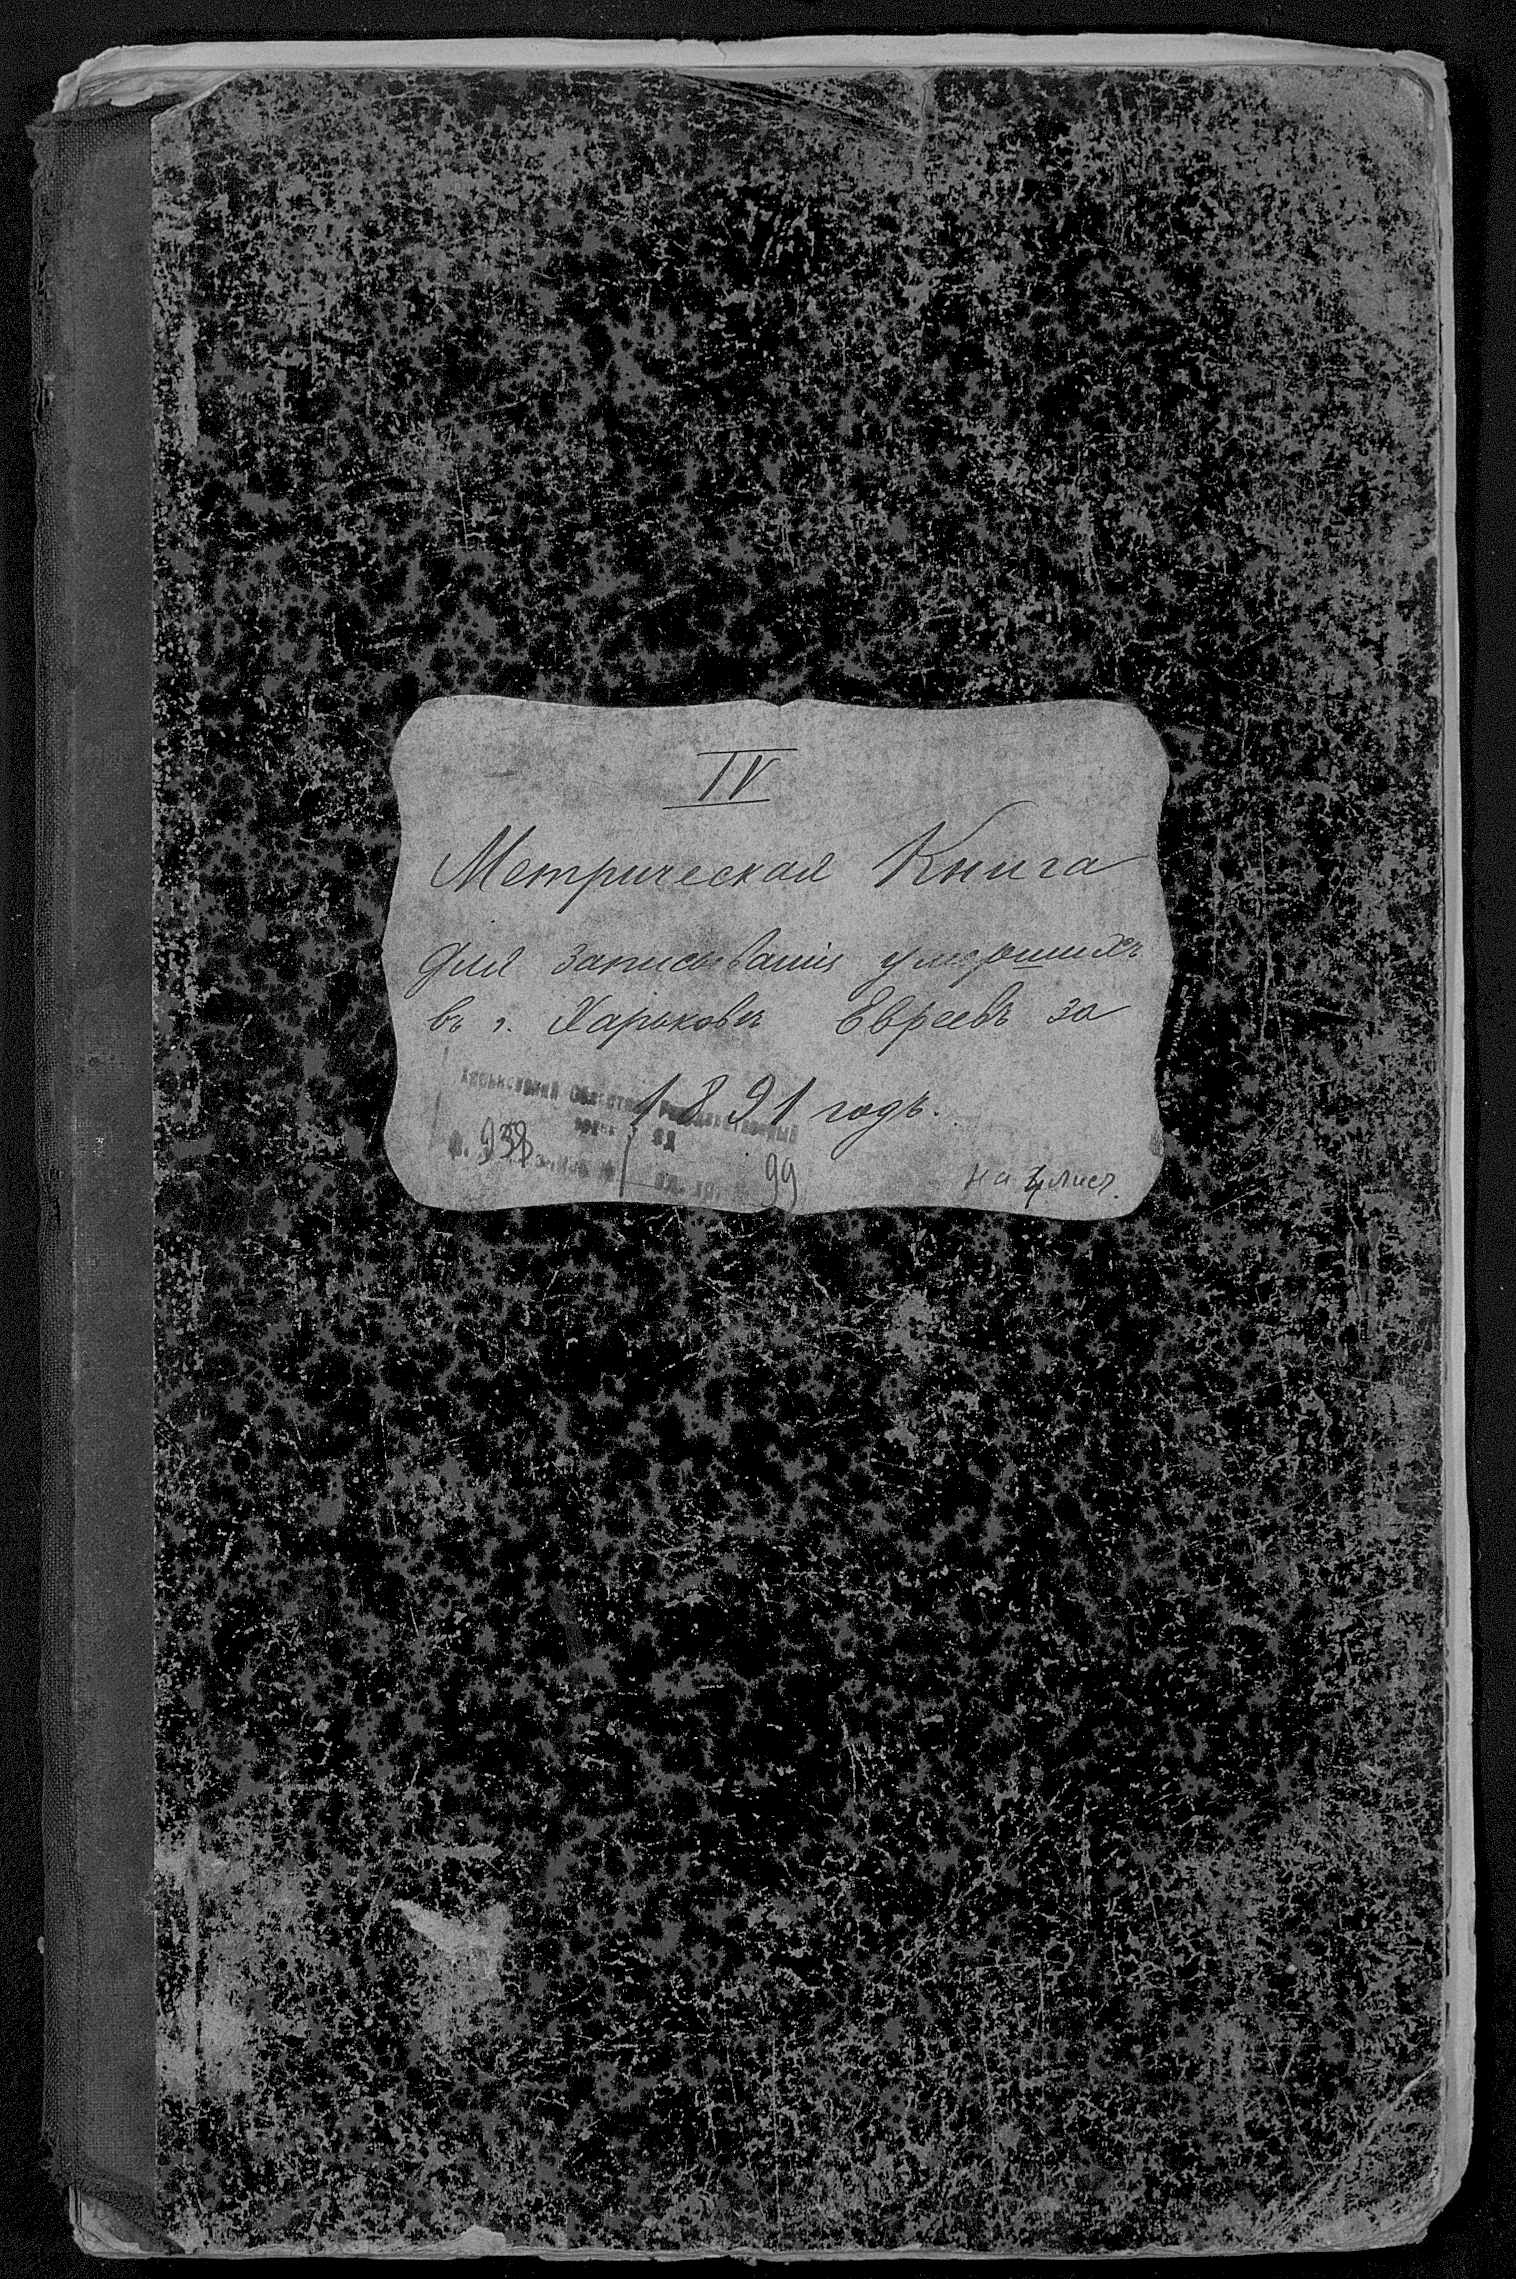 IV
Метрическая Книга
для записыванія умершихъ
въ г. Харьковѣ Евреевъ за
1891 годъ.
Харьковский Областной Государственный
938 1 99
на 4 лист.